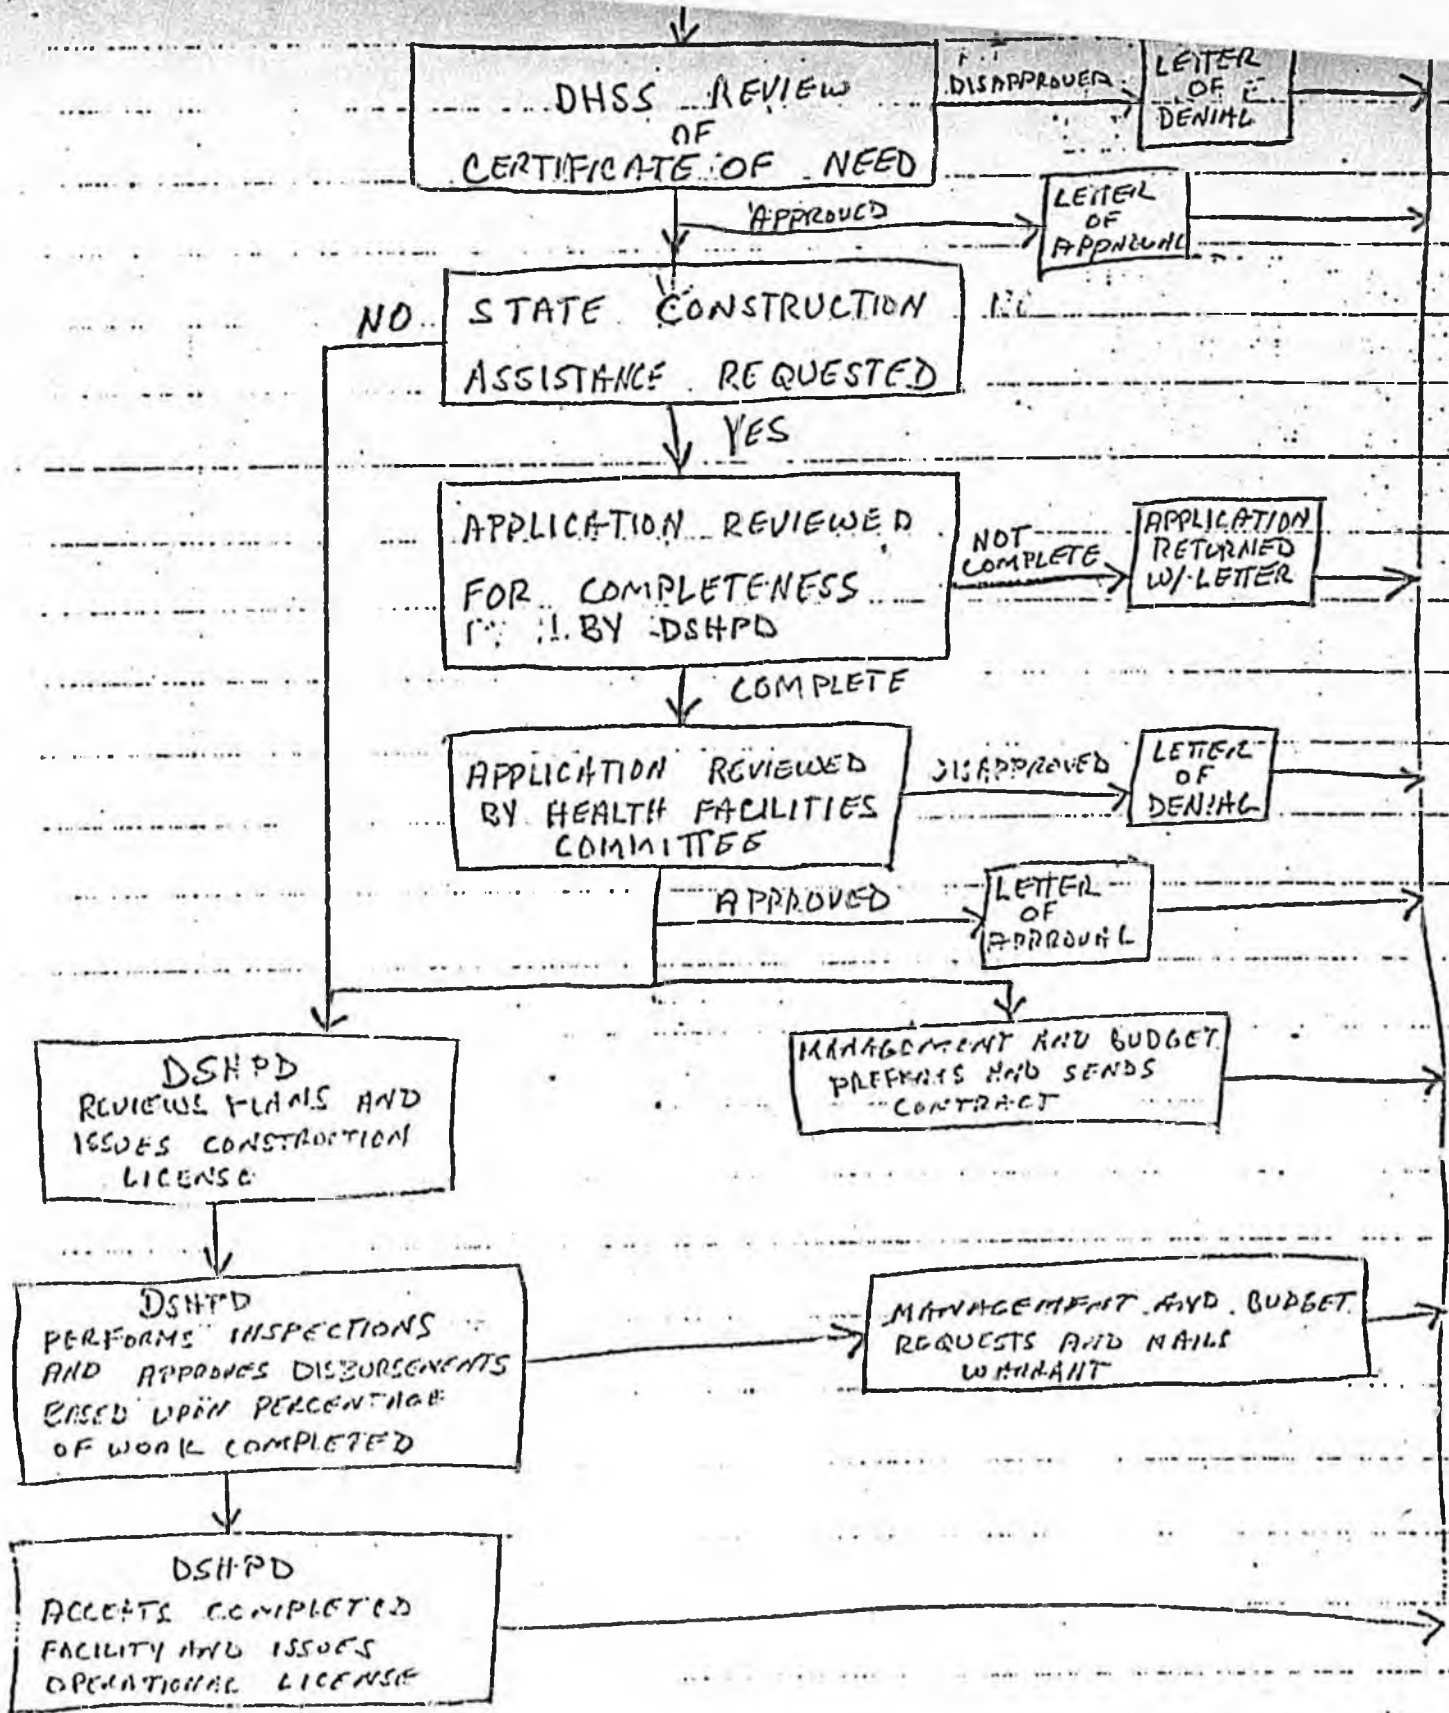 DHSS REVIEW
OF
CERTIFICATE OF NEED
DISAPPROVED
LETTER
OF
DENIAL
APPROVED
LETTER
OF
APPROVAL
NO
STATE CONSTRUCTION
ASSISTANCE REQUESTED
YES
APPLICATION REVIEWED
FOR COMPLETENESS
BY DSHPD
NOT
COMPLETE
APPLICATION
RETURNED
W/ LETTER
COMPLETE
APPLICATION REVIEWED
BY HEALTH FACILITIES
COMMITTEE
DISAPPROVED
LETTER
OF
DENIAL
APPROVED
LETTER
OF
APPROVAL
DSHPD
REVIEWS PLANS AND
ISSUES CONSTRUCTION
LICENSE
MANAGEMENT AND BUDGET
PREPARES AND SENDS
CONTRACT
DSHPD
PERFORMS INSPECTIONS
AND APPROVES DISBURSEMENTS
BASED UPON PERCENTAGE
OF WORK COMPLETED
MANAGEMENT AND BUDGET
REQUESTS AND MAILS
WARRANT
DSHPD
ACCEPTS COMPLETED
FACILITY AND ISSUES
OPERATIONAL LICENSE